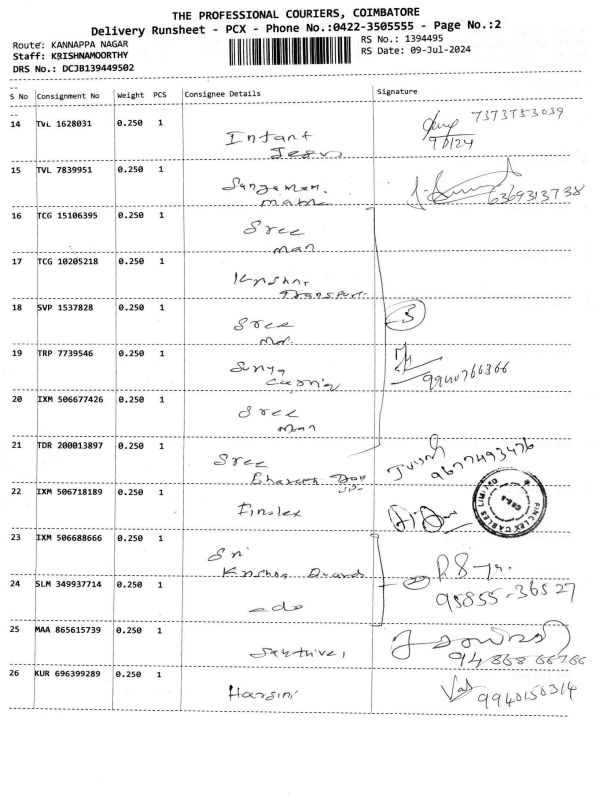 THE PROFESSIONAL COURIERS, COIMBATORE
Delivery Runsheet - PCX - Phone No.:0422-3505555 - Page No.:2
Route: KANNAPPA NAGAR
RS No.: 1394495
Staff: KRISHNAMOORTHY
RS Date: 09-Jul-2024
DRS No.: DCJB139449502
S No Consignment No Weight PCS Consignee Details Signature
14 TVL 1628031 0.250 1 Infant 7373753039
Jesus
15 TVL 7839951 0.250 1 6369313738
16 TCG 15106395 0.250 1 Sree
man
17 TCG 10205218 0.250 1 Krishna
Transport
18 SVP 1537828 0.250 1 Sree 5
19 TRP 7739546 0.250 1 Surya
20 IXM 506677426 0.250 1 Sree
man
21 TDR 200013897 0.250 1 Sree 9677493476
22 IXM 506718189 0.250 1 Finolex
FINOLEX CABLES LIMITED
23 IXM 506688666 0.250 1 Sri
Krishna
24 SLM 349937714 0.250 1 - do 2 95855-36527
25 MAA 865615739 0.250 1 Sakthivel
26 KUR 696399289 0.250 1 Harsini 9940150314